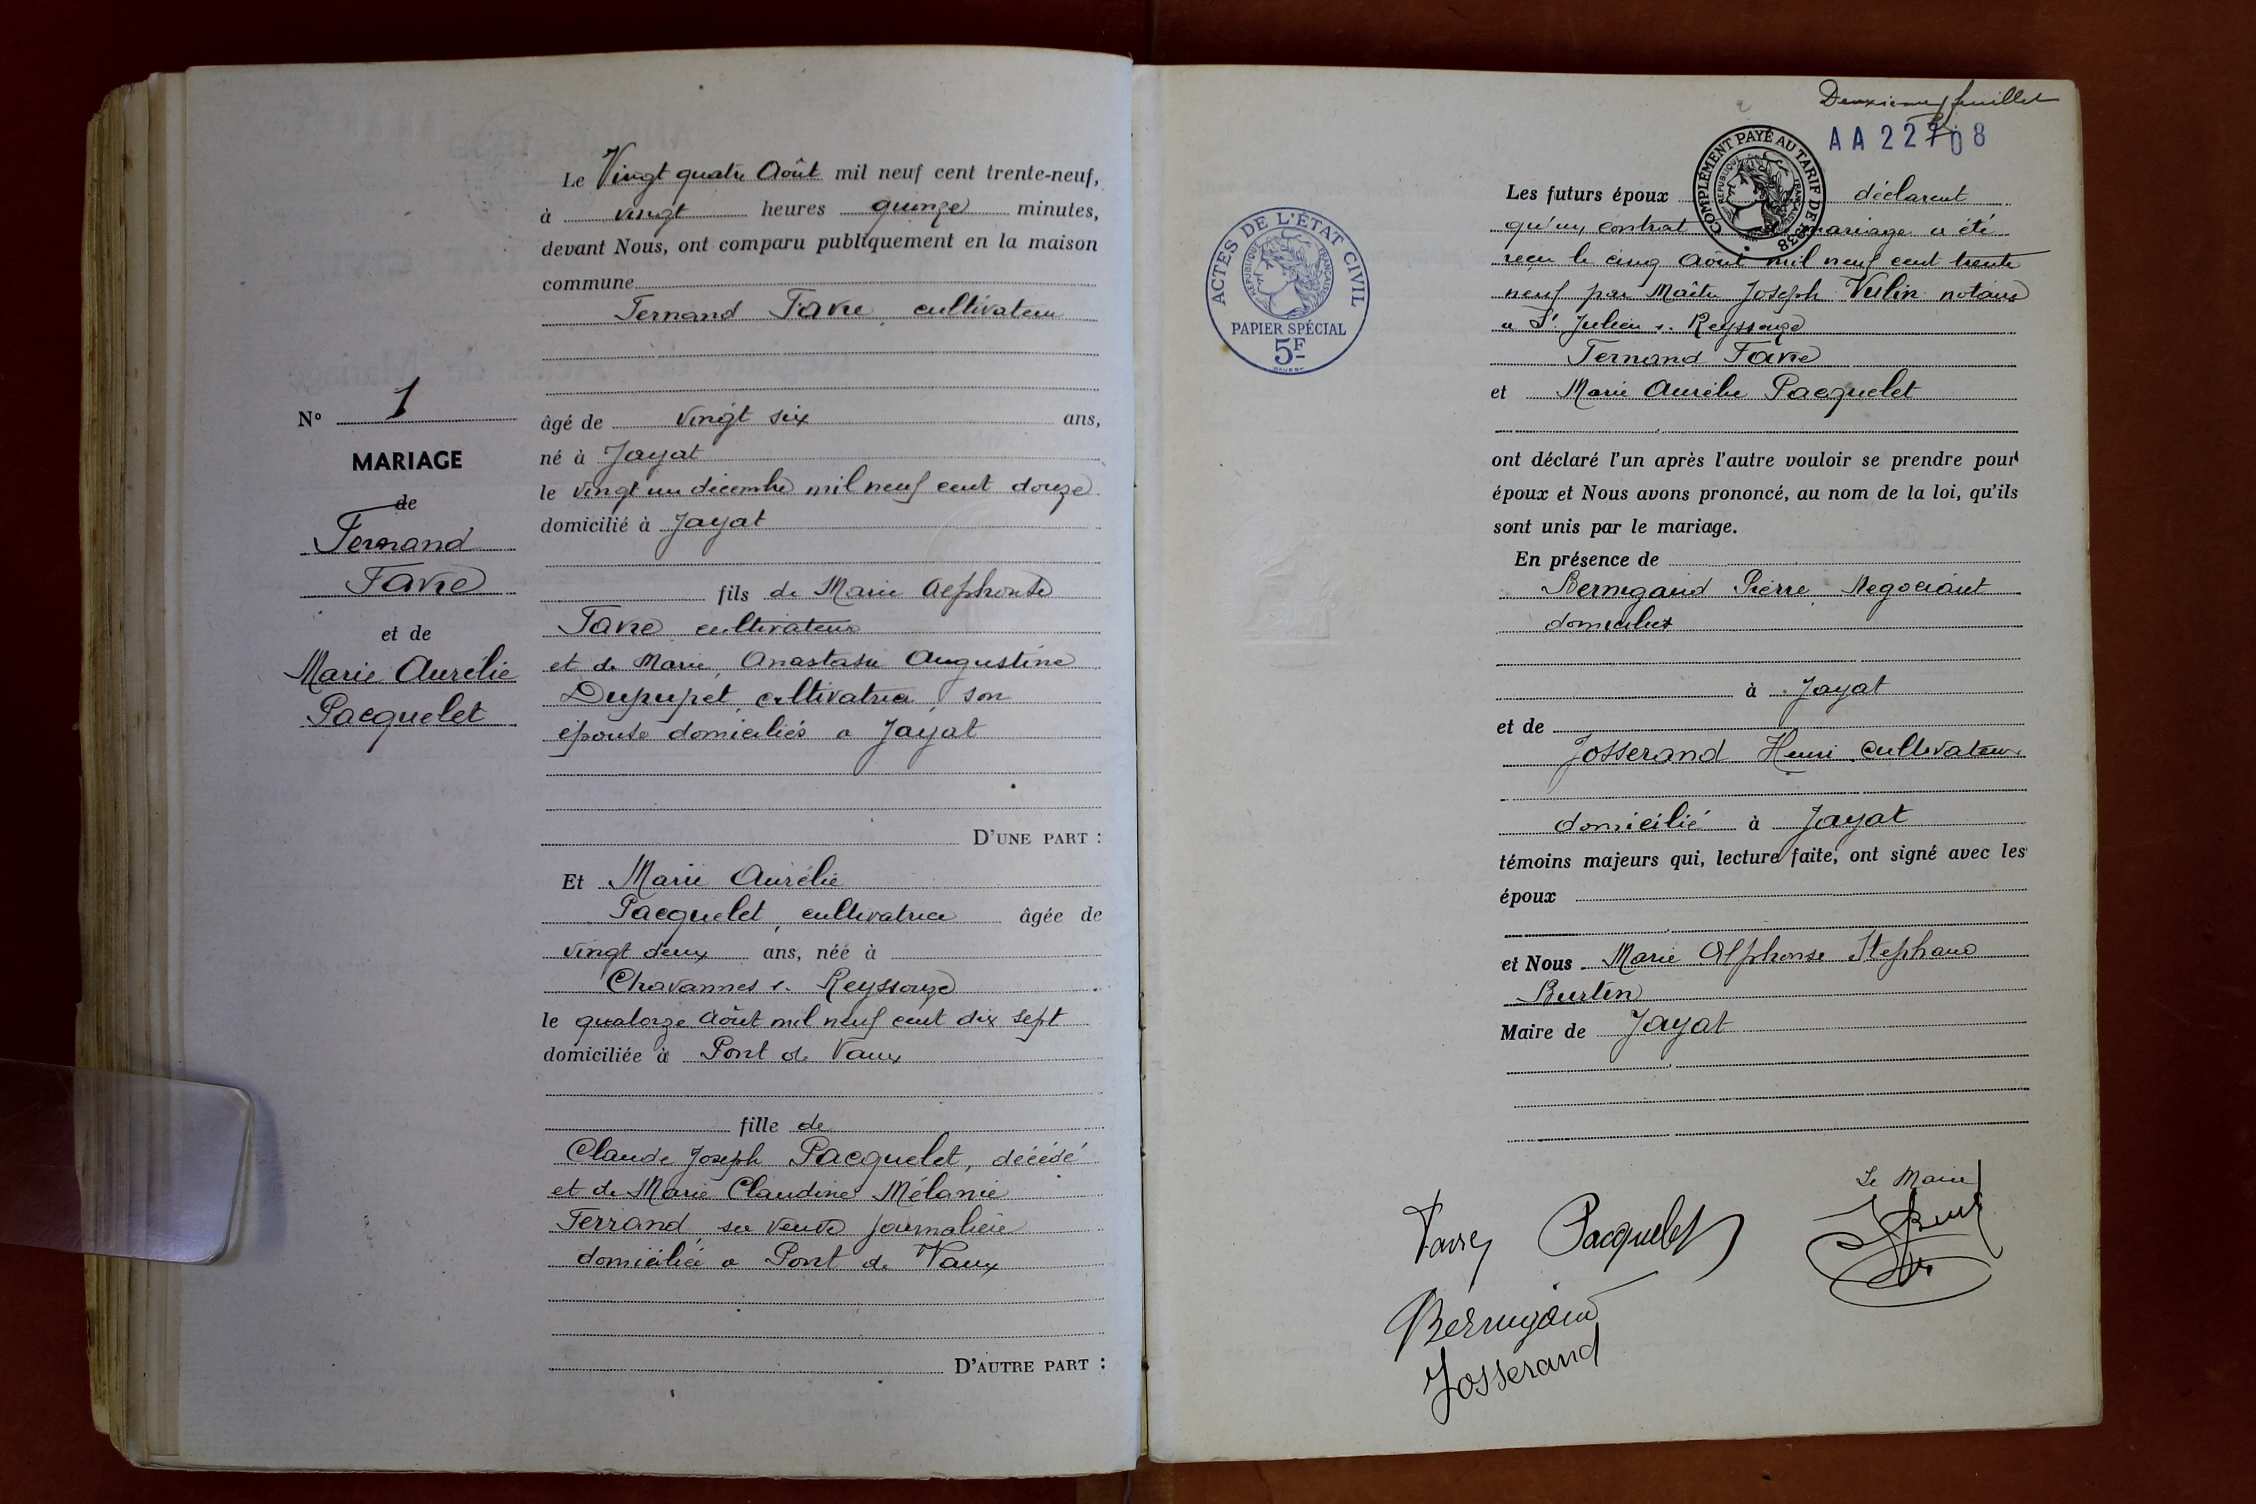 Le Vingt quatre Août mil neuf cent trente-neuf,
à vingt heures quinze minutes,
devant Nous, ont comparu publiquement en la maison
commune
Fernand Favre, cultivateur
âgé de vingt six ans,
né à Jayat
le vingt un décembre mil neuf cent douze
domicilié à Jayat
fils de Marie Alphonse
Favre cultivateur
et de Marie Anastasie Augustine
Dupupet, cultivatrice, son
épouse domiciliés a Jayat
D'UNE PART :
N° 1
MARIAGE
de
Fernand
Favre
et de
Marie Aurélie
Pacquelet
Et Marie Aurélie
Pacquelet, cultivatrice âgée de
vingt deux ans, née à
Chavannes s. Reyssouze
le quatorze Août mil neuf cent dix sept
domiciliée à Pont de Vaux
fille de
Claude Joseph Pacquelet, décédé
et de Marie Claudine Mélanie
Ferrand, sa veuve journalière
domiciliée a Pont de Vaux
D'AUTRE PART :
Deuxième feuillet
AA 22708
COMPLÉMENT PAYÉ AU TARIF DE 1938
RÉPUBLIQUE FRANÇAISE
ACTES DE L'ÉTAT CIVIL
RÉPUBLIQUE FRANÇAISE
PAPIER SPÉCIAL
5F
Les futurs époux déclarent
qu'un contrat mariage a été
reçu le cinq Août mil neuf cent trente
neuf par Maître Joseph Vulin notaire
a St Julien s. Reyssouze
Fernand Favre
et Marie Aurélie Pacquelet
ont déclaré l'un après l'autre vouloir se prendre pour
époux et Nous avons prononcé, au nom de la loi, qu'ils
sont unis par le mariage.
En présence de
Bernigaud Pierre, Negociant
domicilié
à Jayat
et de
Josserand Henri, cultivateur
domicilié à Jayat
témoins majeurs qui, lecture faite, ont signé avec les
époux
et Nous Marie Alphonse Stephane
Burtin
Maire de Jayat
Le Maire
Favre Pacquelet
Bernigaud
Josserand